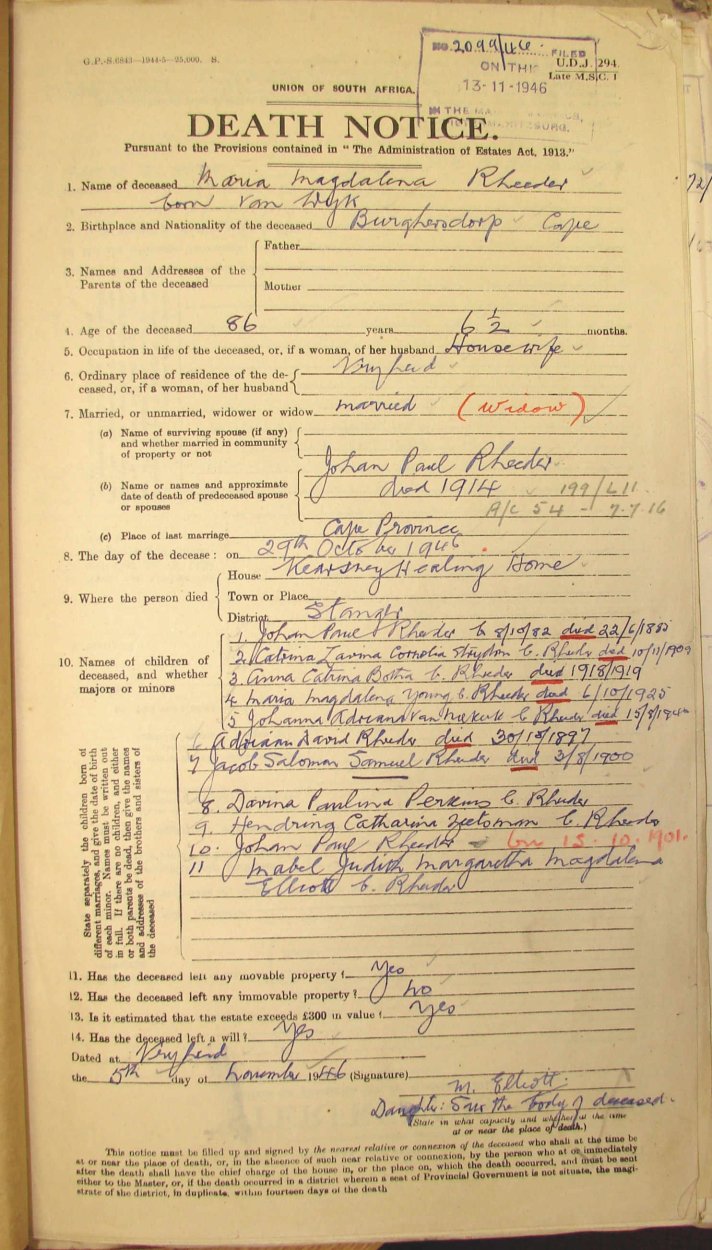 G.P.-S.6843—1944-5—25,000. S.
NO. 2099/46. FILED
ON THIS
13-11-1946
IN THE
U.D.J. 294.
Late M.S.C. 1
UNION OF SOUTH AFRICA.
DEATH NOTICE.
Pursuant to the Provisions contained in "The Administration of Estates Act, 1913."
1. Name of deceased Maria Magdalena Rheeder
born Van Wyk
2. Birthplace and Nationality of the deceased Burghersdorp Cape
3. Names and Addresses of the Parents of the deceased
Father
Mother
4. Age of the deceased 86 years 6 ½ months.
5. Occupation in life of the deceased, or, if a woman, of her husband Housewife
6. Ordinary place of residence of the deceased, or, if a woman, of her husband Vryheid
7. Married, or unmarried, widower or widow married (widow)
(a) Name of surviving spouse (if any) and whether married in community of property or not
(b) Name or names and approximate date of death of predeceased spouse or spouses
Johan Paul Rheeder
died 1914 199/L11
A/C 54 - 7.7.16
(c) Place of last marriage Cape Province
8. The day of the decease: on 29th October 1946
9. Where the person died
House Kearsney Healing Home
Town or Place
District Stanger
10. Names of children of deceased, and whether majors or minors
State separately the children born of different marriages, and give the date of birth of each minor. Names must be written out in full. If there are no children, and either or both parents be dead, then give the names and addresses of the brothers and sisters of the deceased
1. Johan Paul Rheeder b 8/10/82 died 22/6/1885
2. Catrina Lavina Cornelia Strydom b. Rheeder died 10/11/1909
3. Anna Catrina Botha b. Rheeder died 1918/1919
4 Maria Magdalena Young b. Rheeder died 6/10/1925
5 Johanna Adriana Van Niekerk b Rheeder died
6 Adriaan David Rheeder died 1897
7 Jacob Saloman Samuel Rheeder died 3/8/1900
8. Davina Paulina Perkins b. Rheeder
9. Hendrina Catharina Zietsman b. Rheeder
10. Johan Paul Rheeder born 15.10.1901.
11 Mabel Judith Margaretha Magdalena
Elliott b. Rheeder
11. Has the deceased left any movable property? Yes
12. Has the deceased left any immovable property? No
13. Is it estimated that the estate exceeds £300 in value? Yes
14. Has the deceased left a will? Yes
Dated at Vryheid
the 5th day of November 1946 (Signature) M. Elliott.
Daughter: Saw the body of deceased.
(State in what capacity and whether at the time at or near the place of death.)
This notice must be filled up and signed by the nearest relative or connexion of the deceased who shall at the time be
at or near the place of death, or, in the absence of such near relative or connexion, by the person who at or immediately
after the death shall have the chief charge of the house in, or the place on, which the death occurred, and must be sent
either to the Master, or, if the death occurred in a district wherein a seat of Provincial Government is not situate, the magi-
strate of the district, in duplicate, within fourteen days of the death